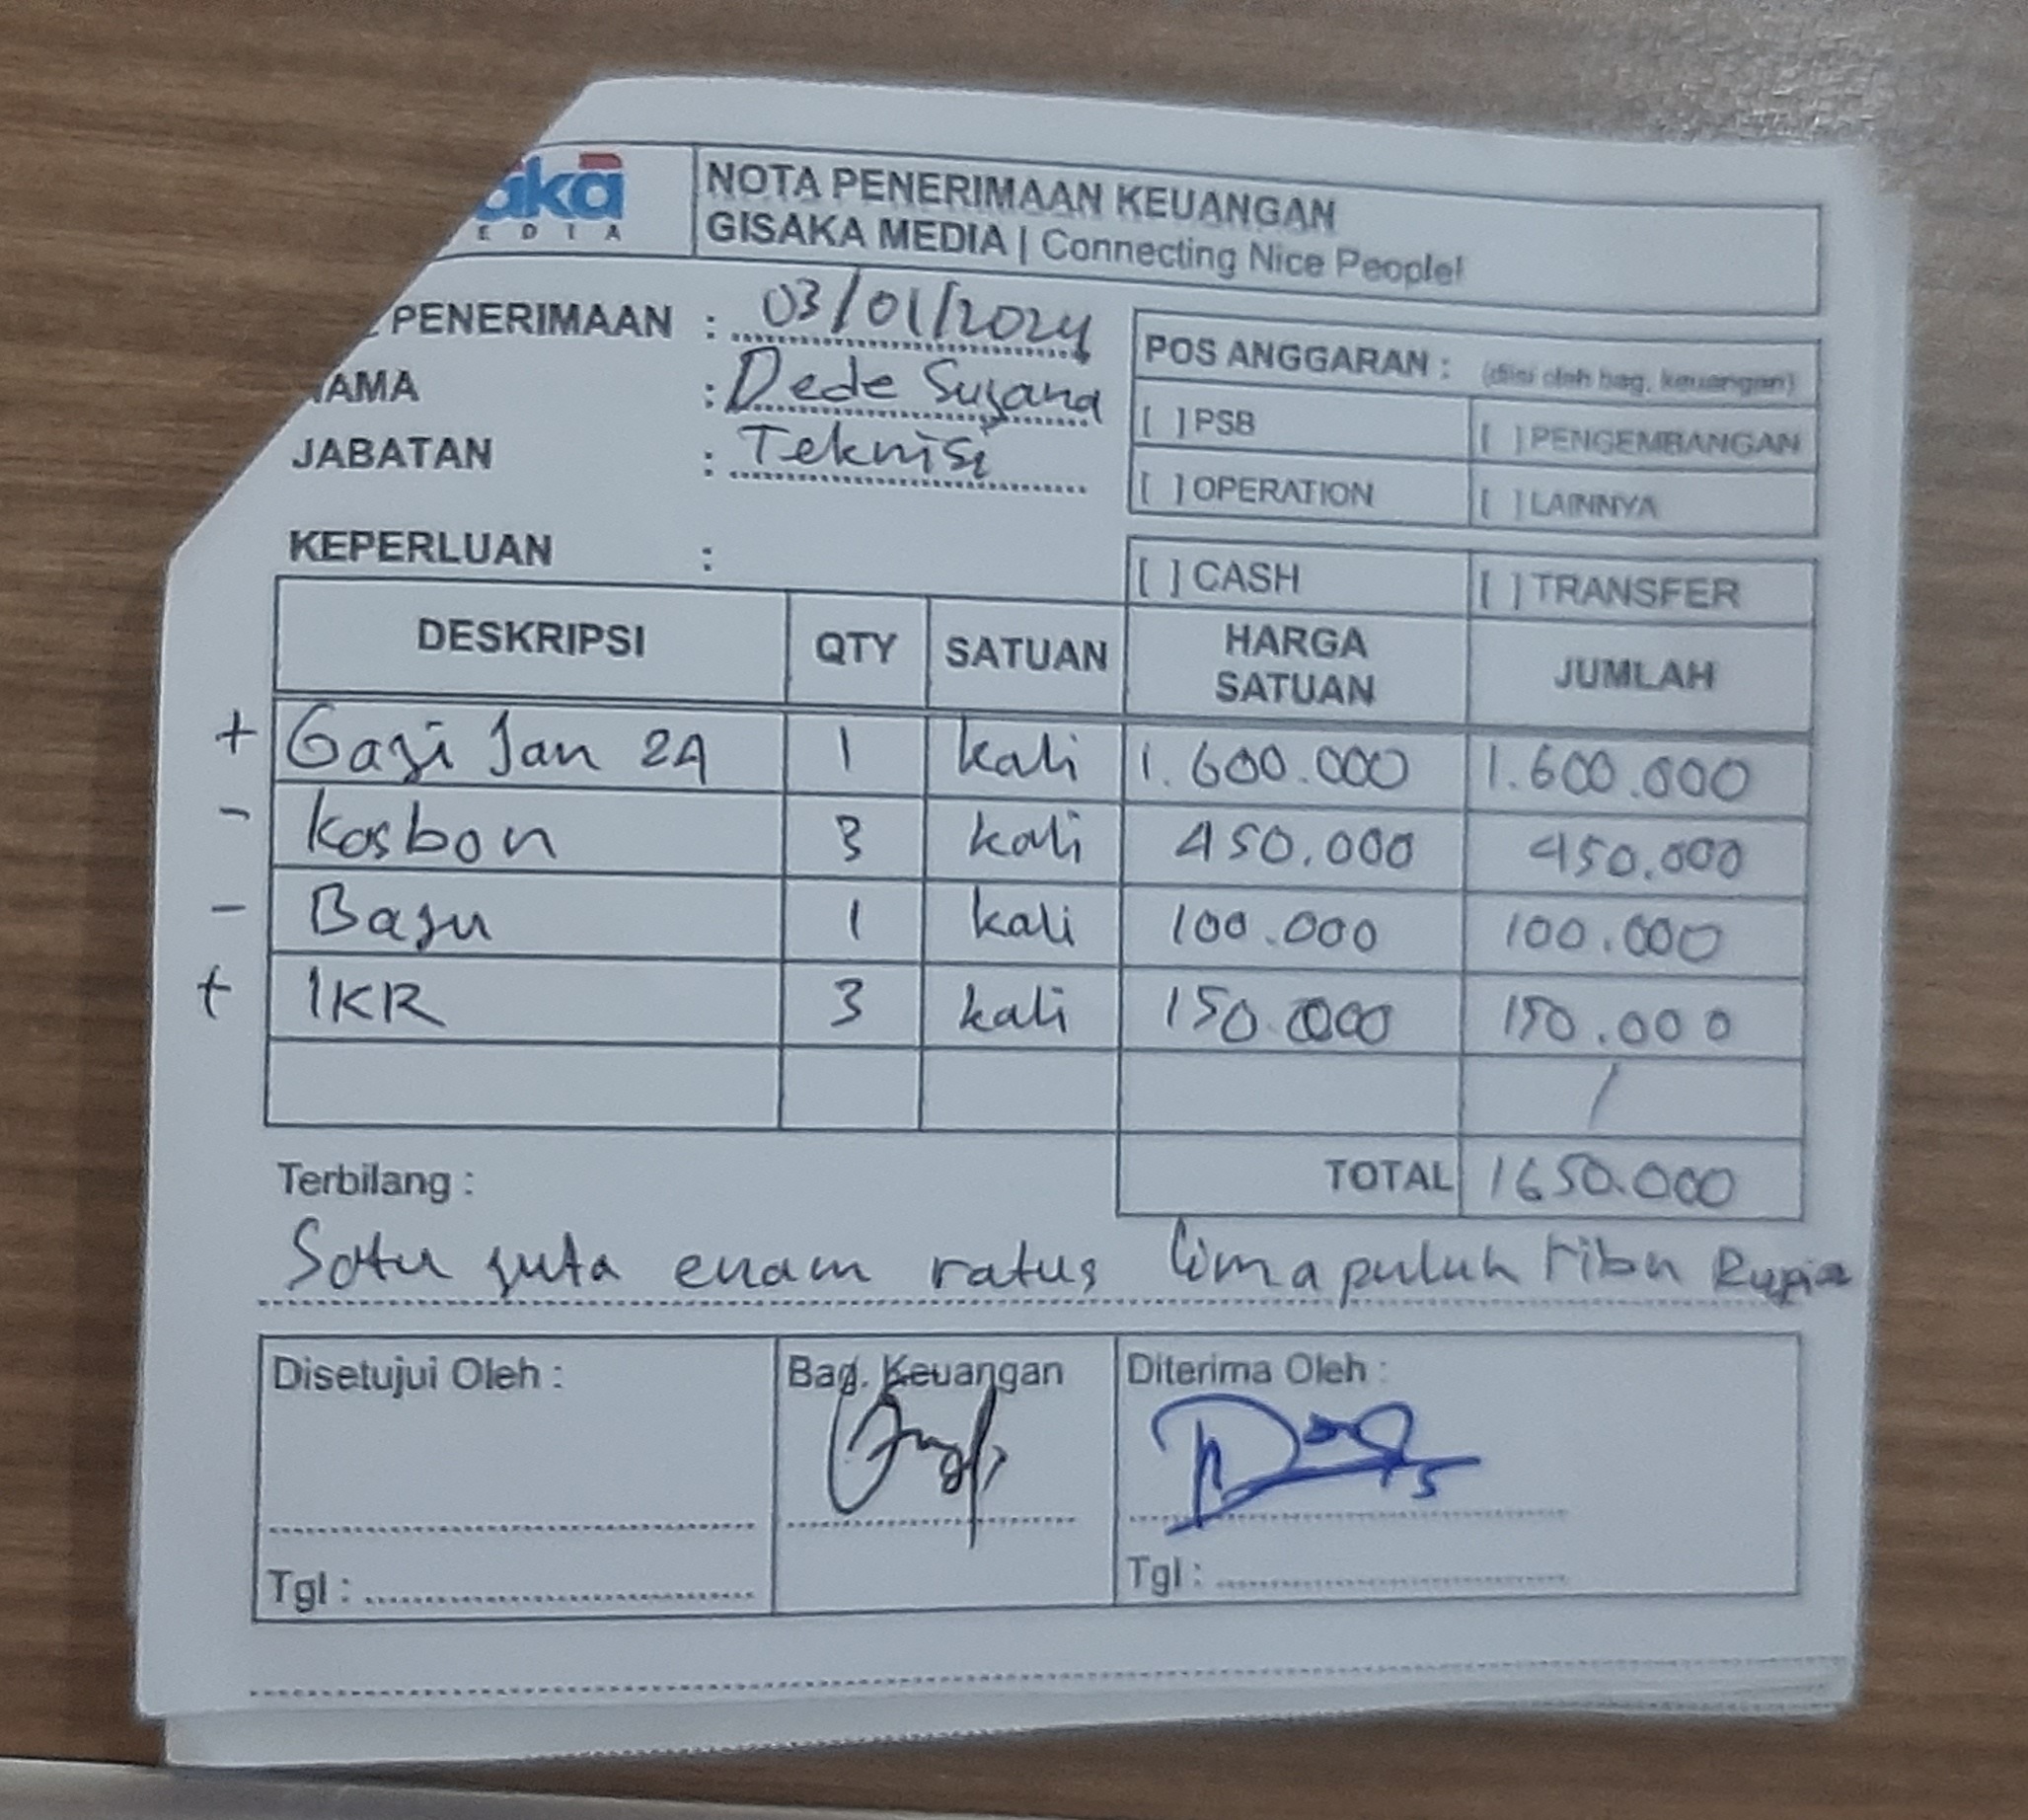 aka
EDIA
NOTA PENERIMAAN KEUANGAN
GISAKA MEDIA | Connecting Nice People!
PENERIMAAN : 03/01/2024
AMA : Dede Suyana
JABATAN : Teknisi
POS ANGGARAN : (diisi oleh bag. keuangan)
[ ] PSB [ ] PENGEMBANGAN
[ ] OPERATION [ ] LAINNYA
KEPERLUAN :
[ ] CASH [ ] TRANSFER
DESKRIPSI QTY SATUAN HARGA SATUAN JUMLAH
+ Gaji Jan 24 1 kali 1.600.000 1.600.000
- Kasbon 3 kali 450.000 450.000
- Baju 1 kali 100.000 100.000
+ IKR 3 kali 150.000 150.000
/
TOTAL 1650.000
Terbilang :
Satu juta enam ratus limapuluh ribu Rupia
Disetujui Oleh : Bag. Keuangan Diterima Oleh :
Tgl : Tgl :